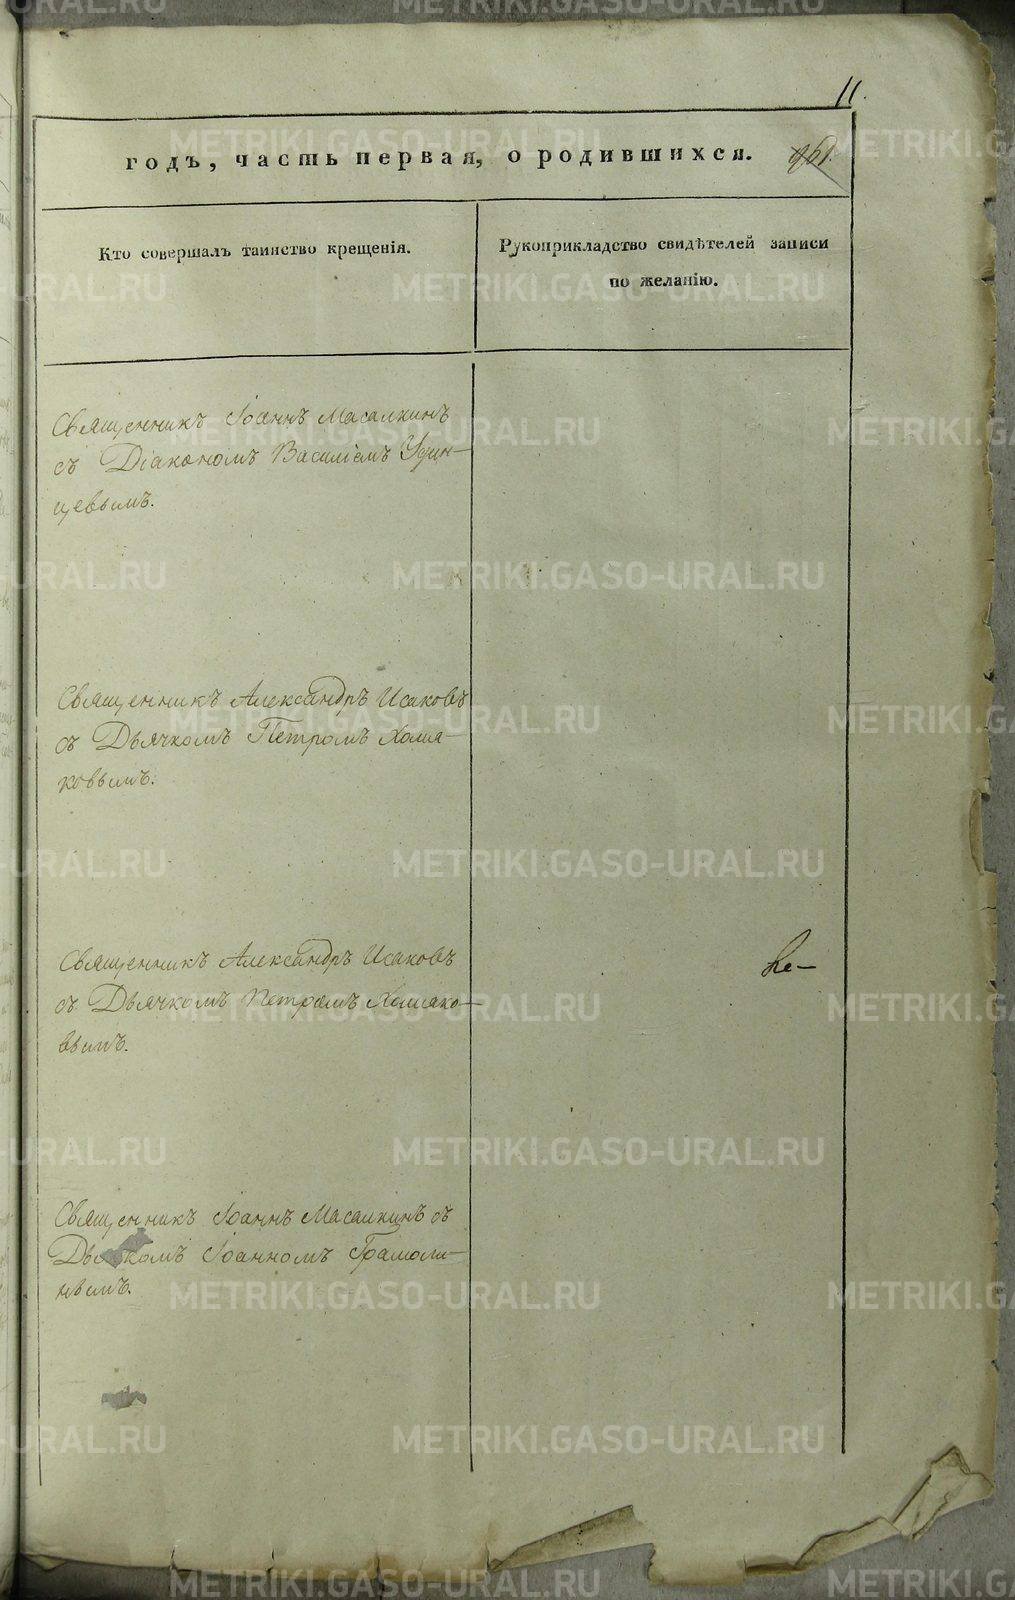 11.
годъ, часть первая, о родившихся.
Кто совершалъ таинство крещенія.
Рукоприкладство свидѣтелей записи
по желанію.
Священникъ Іоаннъ Масалкинъ
съ Діакономъ Василіемъ Удин-
цевымъ.
Священникъ Александръ Исаковъ
съ Дьячкомъ Петромъ Холмя-
ковымъ.
Священникъ Александръ Исаковъ
съ Дьячкомъ Петромъ Холмяко-
вымъ.
Священникъ Іоаннъ Масалкинъ съ
Дьячкомъ Іоанномъ Грамоли-
нымъ.
METRIKI.GASO-URAL.RU